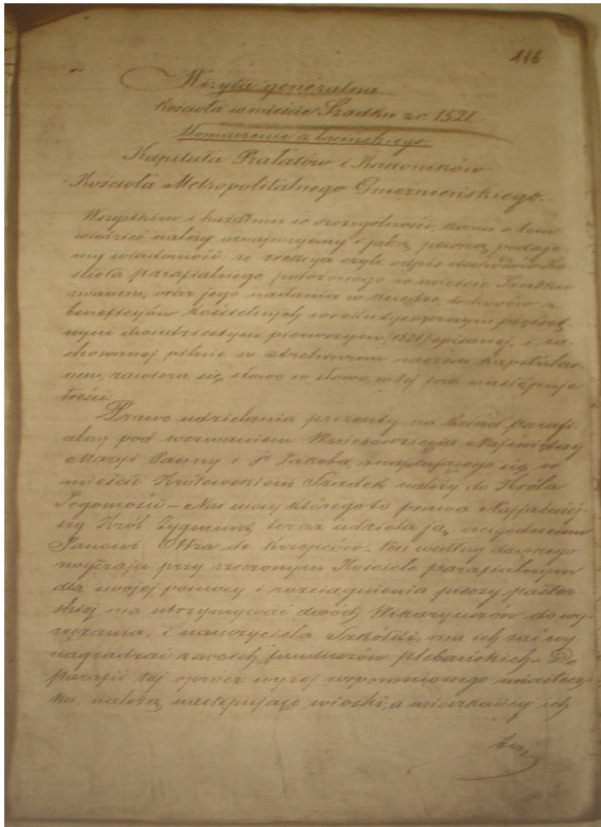 116
Wizyta generalna
Kościoła w mieście Szadku z r. 1521
tłomaczenie z łacińskiego.
Kapituła Prałatów i Kanoników
Kościoła Metropolitalnego Gnieźnieńskiego.
Wszystkim i każdemu w szczególności, komu o tem
wiedzieć należy oznajmujemy i jaką pewną podaje-
my wiadomość, że czyli odpis dochodów Ko-
ścioła parafialnego, położonego w mieście Szadku
zwanem, oraz jego nadania w dochodów z
beneficyów kościelnych w roku tysiącznym pięćset-
nym dwudziestym pierwszym (1521) spisanej, i za-
chowanej pilnie w Archiwum naszem kapitular-
nem, zawiera się, słowo w słowo, w tej jak następuje
treści:
Prawo udzielania prezenty na kościół parafi-
alny pod wezwaniem Wniebowzięcia Najświętszej
Maryi Panny i Ś. Jakóba, znajdującego się w
mieście Królewskiem Szadek należy do Króla
Jegomości – mocy którego to prawa Najjaśniej-
szy Król Zygmunt teraz udziela ją,
Panowi de Ten według dawnego
zwyczaju przy rzeczonym Kościele parafialnym
dla swojej pomocy i rozciągnienia pieczy paster-
skiej ma utrzymywać dwóch Wikaryuszów do wy-
ręczania, i nauczyciela Szkółki, ma ich zaś wy-
nagradzać z swoich funduszów plebańskich. Do
parafii tej oprócz wyżej wspomnionego miastecz-
ka, należą następujące wioski, a mieszkańcy ich